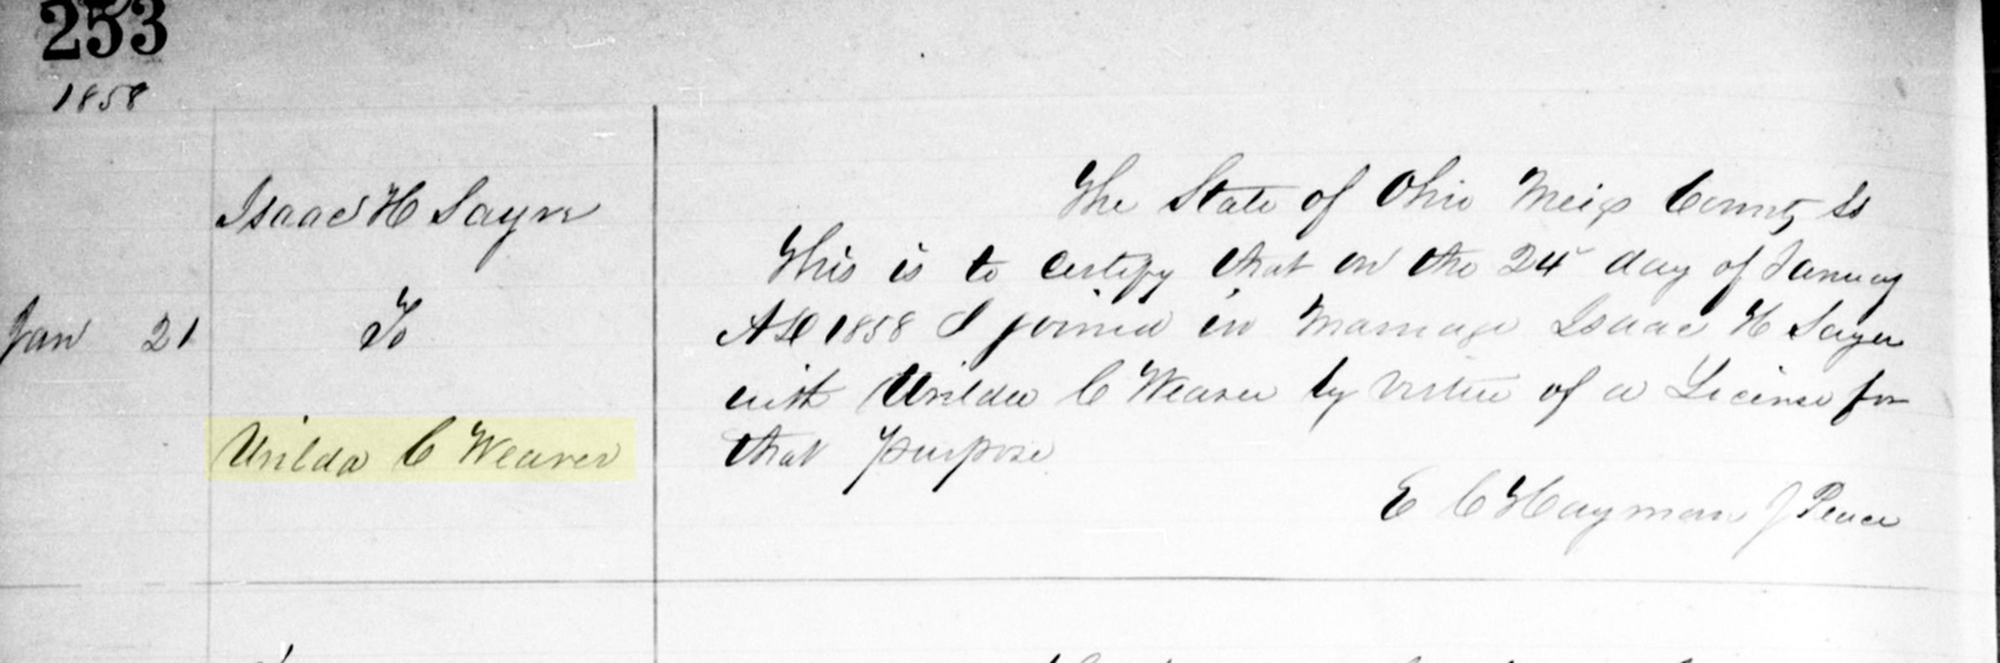 253
1858
Isaac H Sayre
Jan 21
To
Urilda C Weaver
The State of Ohio Meigs County Ss
This is to certify that on the 24 day of January
AD 1858 I joined in marriage Isaac H Sayre
with Urilda C Weaver by virtue of a License for
that purpose
E C Hayman J Peace